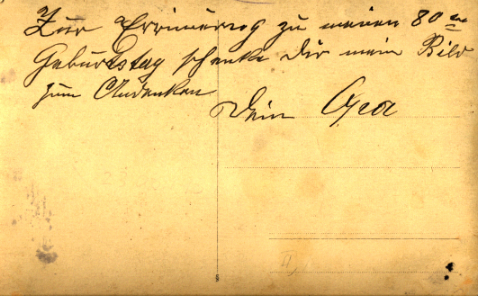 Zur Erinnerung zu meinen 80ten
Geburtstag schenke Dir mein Bild
zum Andenken
Dein